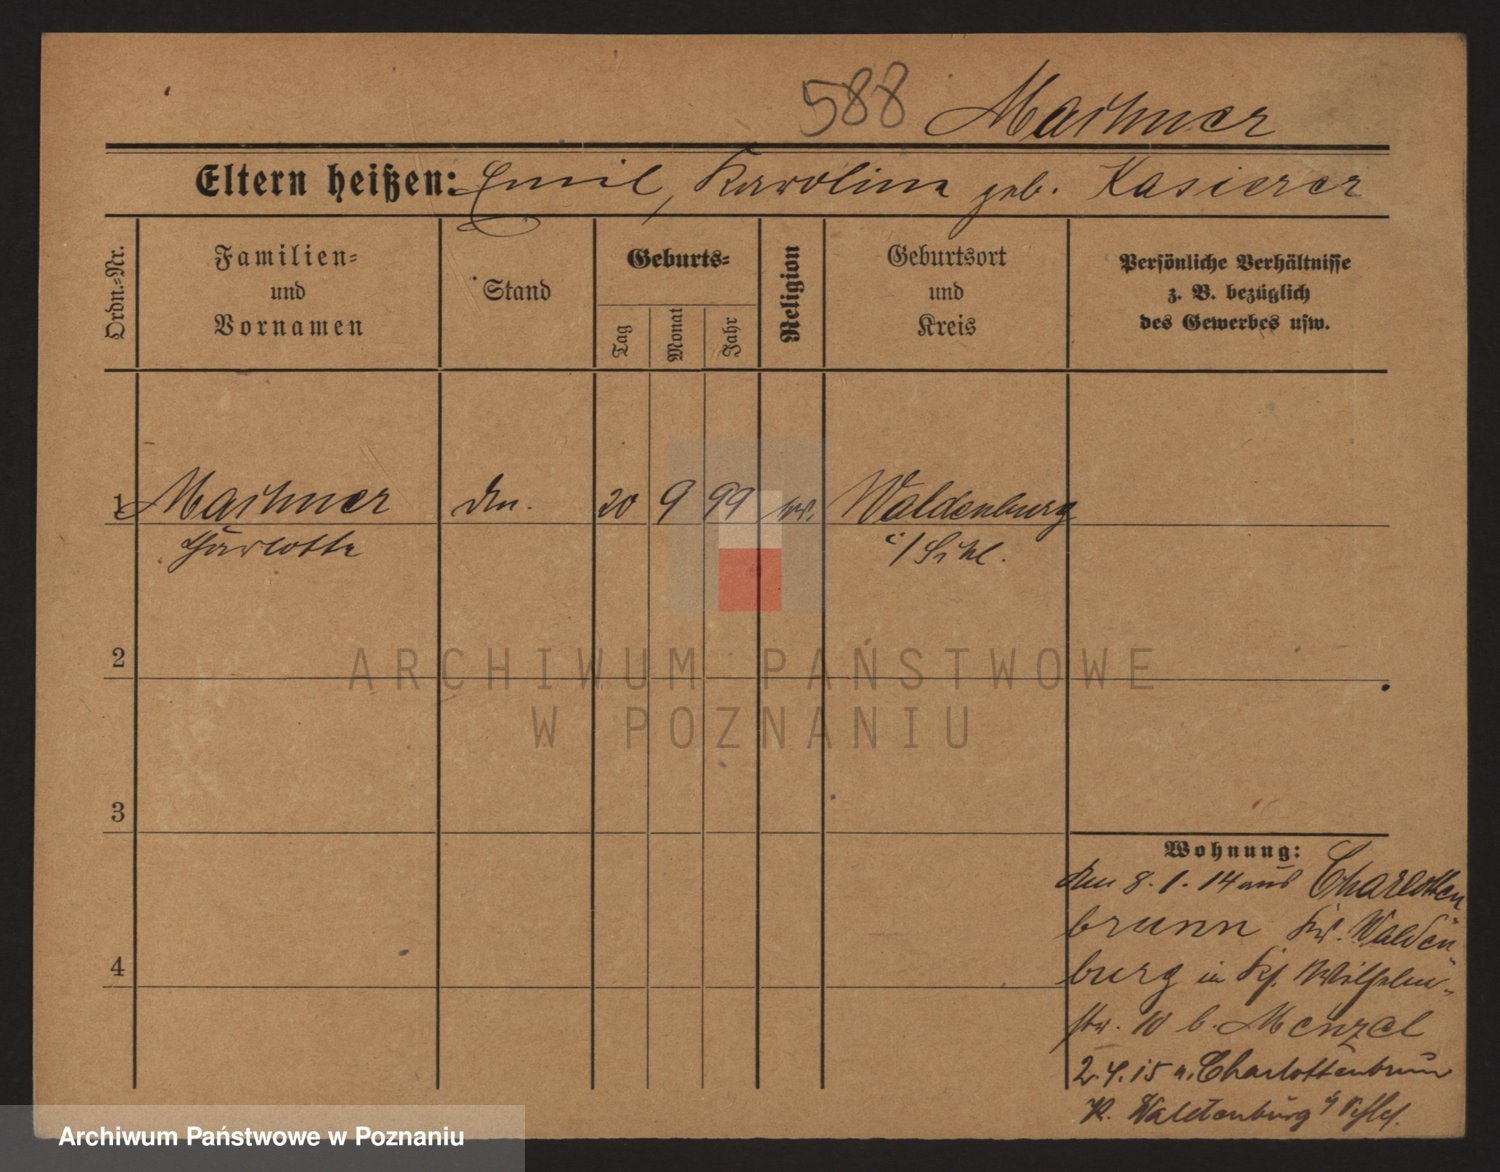 588 Maihner
Eltern heißen: Emil, Karoline geb. Kasierer
Ordn.-Nr.
Familien-
und
Vornamen
Stand
Geburts-
Tag
Monat
Jahr
Religion
Geburtsort
und
Kreis
Persönliche Verhältnisse
z. B. bezüglich
des Gewerbes usw.
1 Maihner 20 9 99 ev. Waldenburg
Charlotte i/Schl.
2
ARCHIWUM PAŃSTWOWE
W POZNANIU
3
Wohnung:
8.1.14 aus Charlotten
brunn Kr. Walden
burg in Wilhelm-
str. 10 b. Menzel
2.4.15 n. Charlottenbrunn
Kr. Waldenburg i/Schles.
4
Archiwum Państwowe w Poznaniu